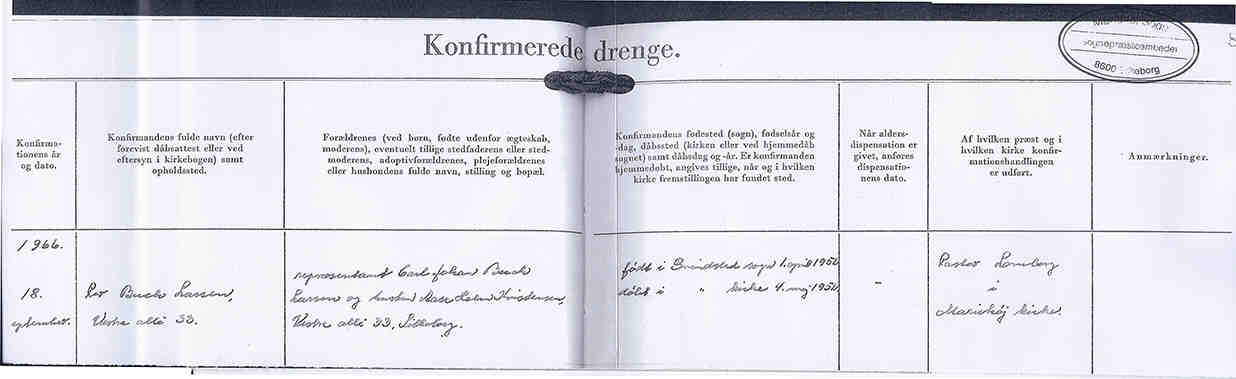 Konfirmerede drenge.
Sogn
8600
Konfirma-
tionens år
og dato.
Konfirmandens fulde navn (efter
forevist dåbsattest eller ved
eftersyn i kirkebogen) samt
opholdssted.
Forældrenes (ved børn, fødte udenfor ægteskab,
moderens), eventuelt tillige stedfaderens eller sted-
moderens, adoptivforældrenes, plejeforældrenes
eller husbondens fulde navn, stilling og bopæl.
Konfirmandens fødested (sogn), fødselsår og
-dag, dåbssted (kirken eller ved hjemmedåb
sognet) samt dåbsdag og -år. Er konfirmanden
hjemmedøbt, angives tillige, når og i hvilken
kirke fremstillingen har fundet sted.
Når alders-
dispensation er
givet, anføres
dispensatio-
nens dato.
Af hvilken præst og i
hvilken kirke konfir-
mationshandlingen
er udført.
Anmærkninger.
1966.
18.
september.
Per Buch Lassen,
Vestre allé 33.
repræsentant Carl Johan Buch
Lassen og hustru Kristensen,
Vestre allé 33, Silkeborg.
født i sogn 1. april 1952
døbt i " kirke 4. maj 1952
"
Pastor
i
Mariehøj kirke.